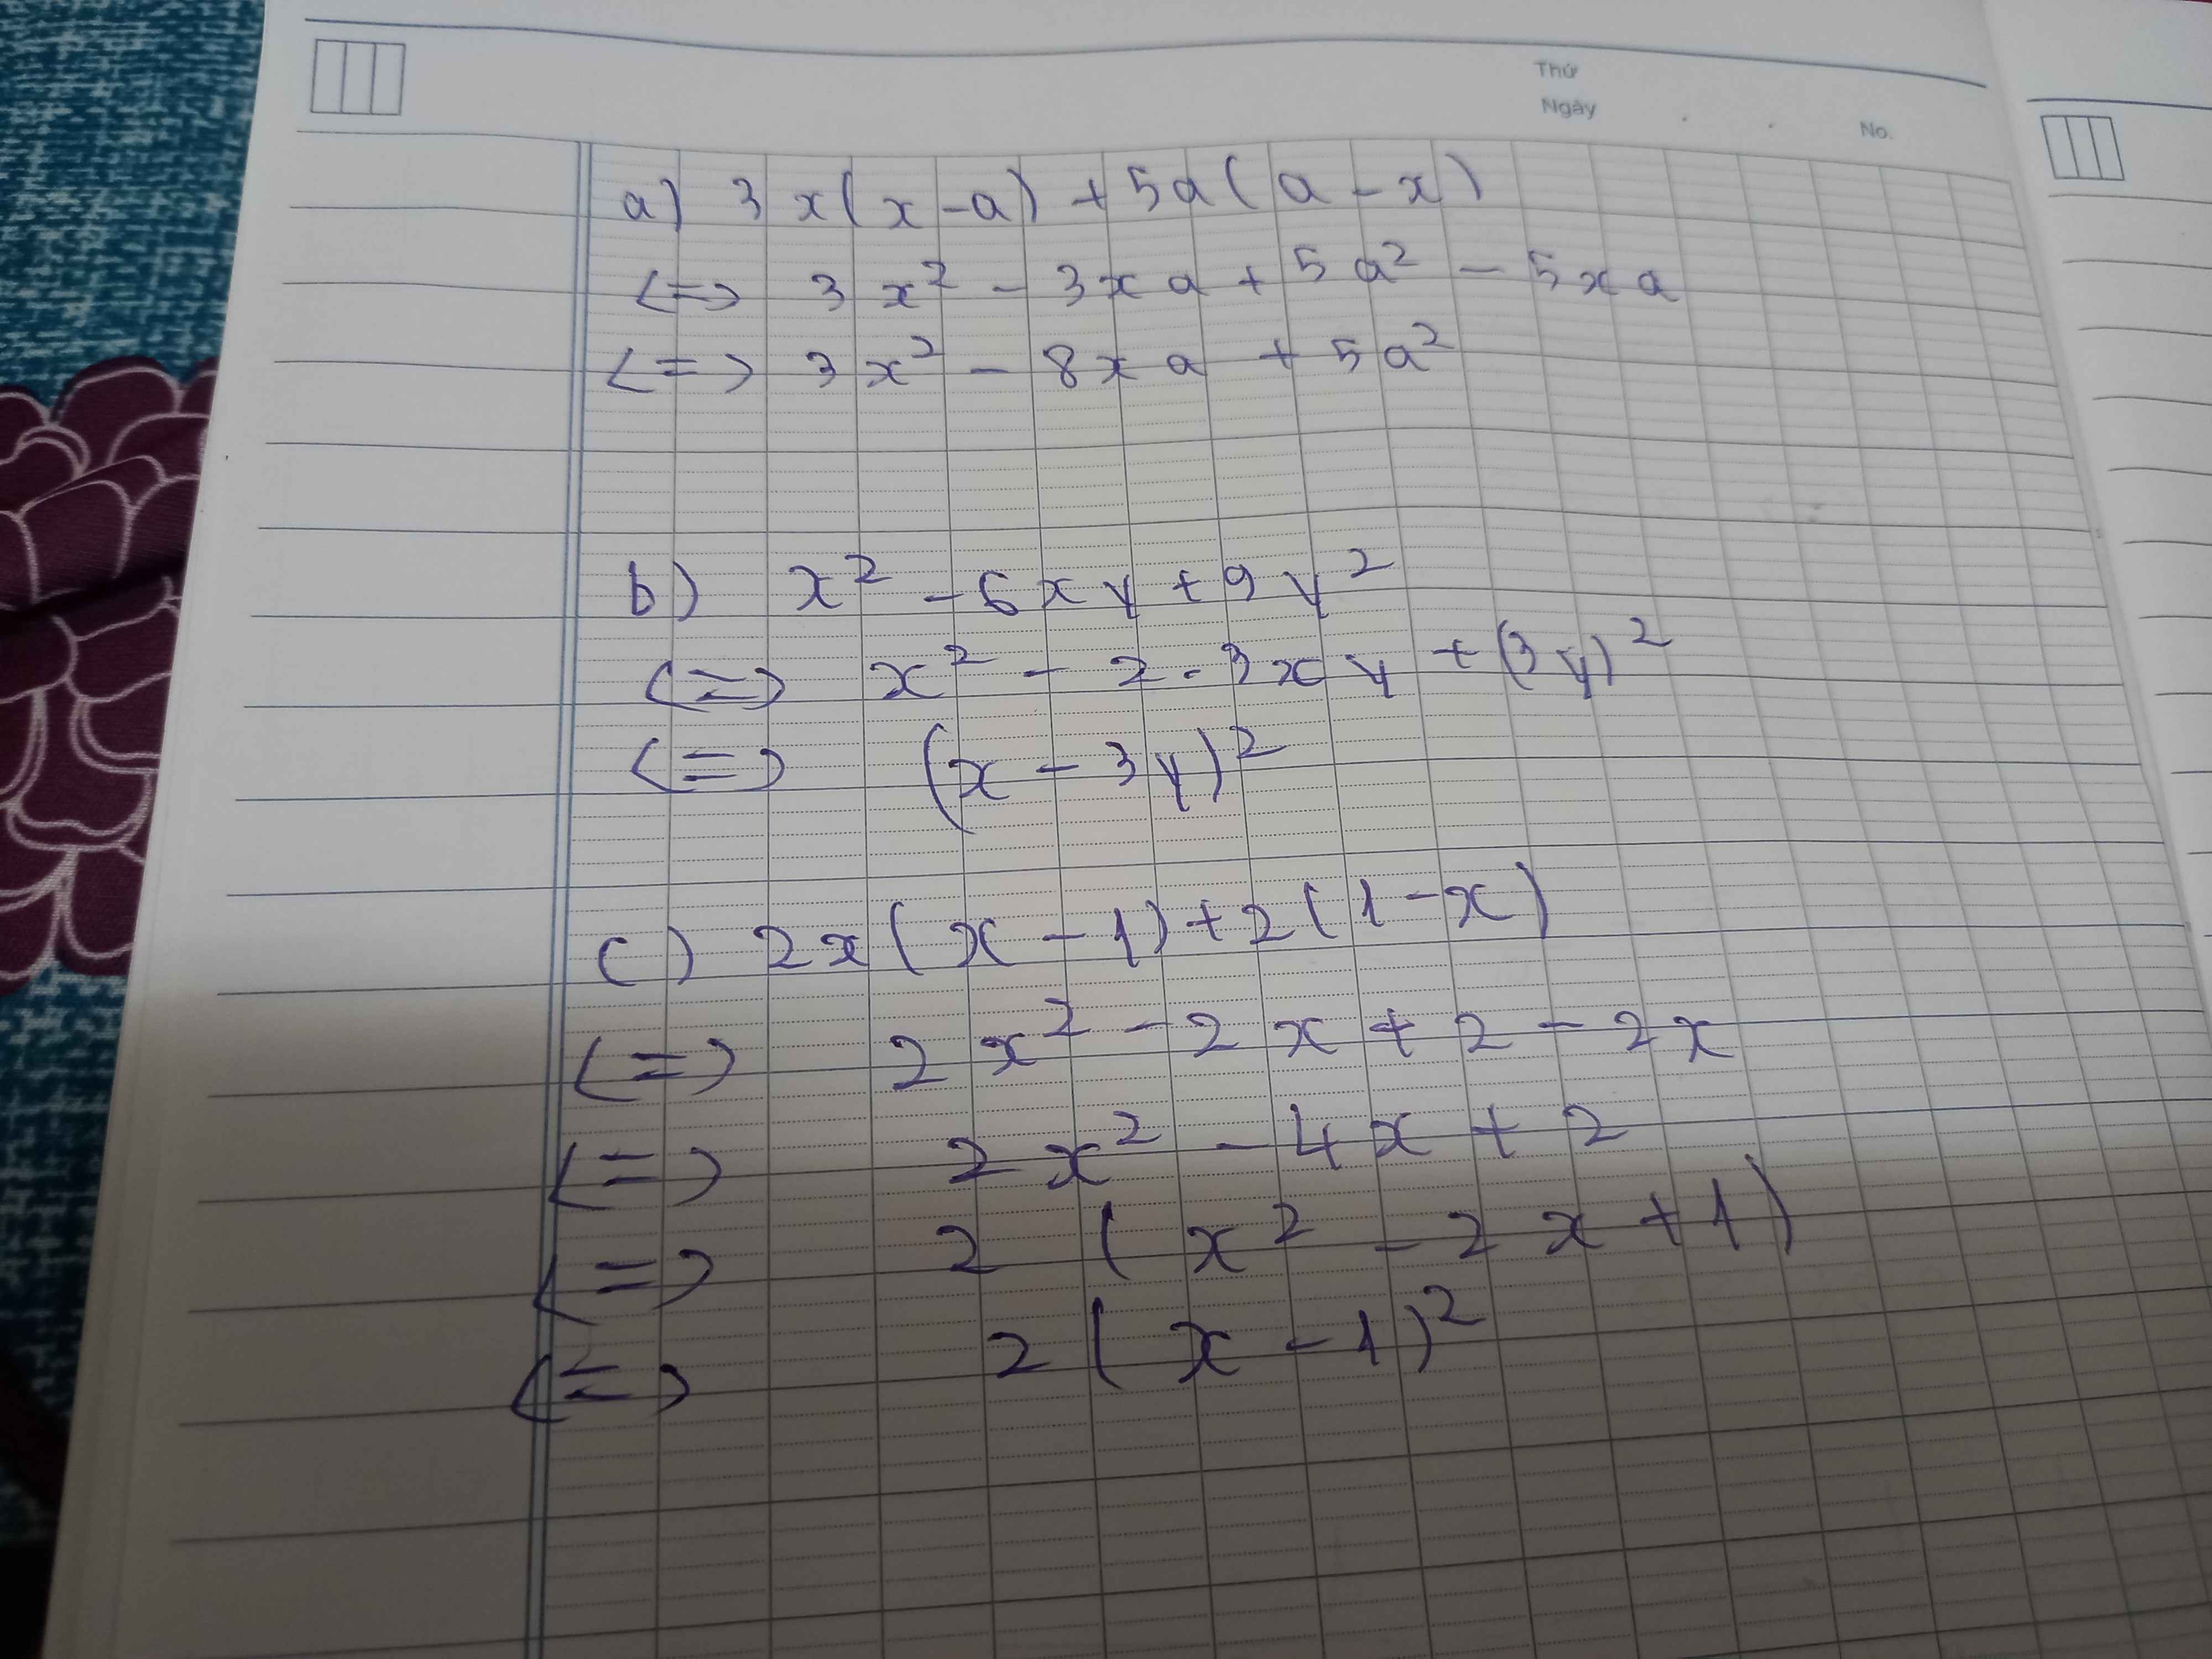 Thứ
Ngày . . No.
a) 3x(x-a) + 5a(a-x)
<=> 3x² - 3xa + 5a² - 5xa
<=> 3x² - 8xa + 5a²
b) x² - 6xy + 9y²
<=> x² - 2.3xy + (3y)²
<=> (x - 3y)²
c) 2x(x-1) + 2(1-x)
<=> 2x² - 2x + 2 - 2x
<=> 2x² - 4x + 2
<=> 2(x² - 2x + 1)
<=> 2(x-1)²